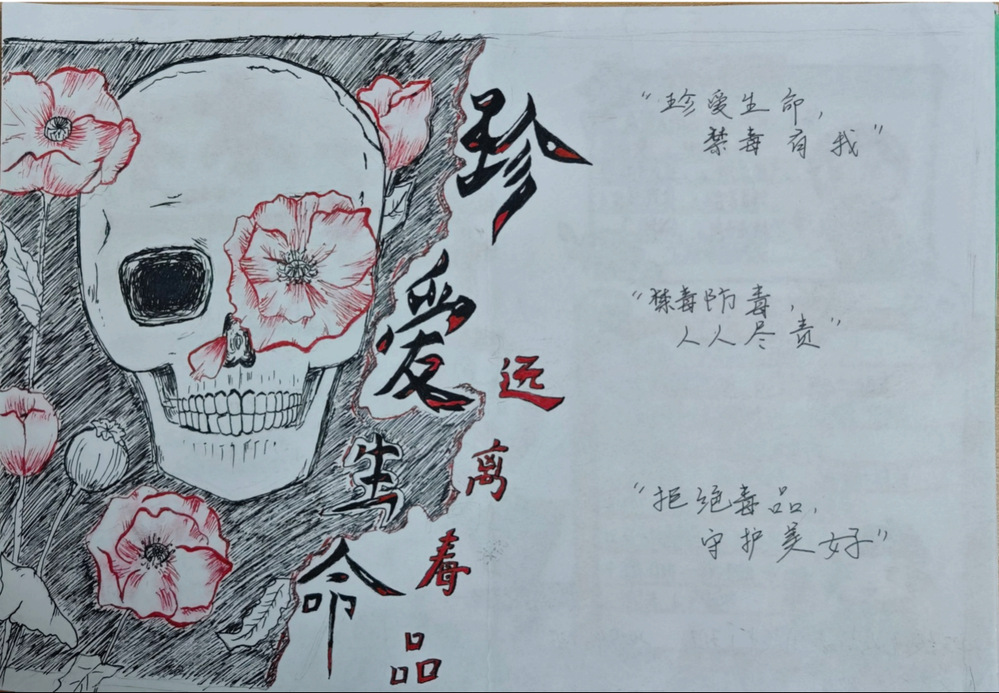 珍爱生命
远离毒品
“珍爱生命，
禁毒有我”
“禁毒防毒，
人人尽责”
“拒绝毒品，
守护美好”